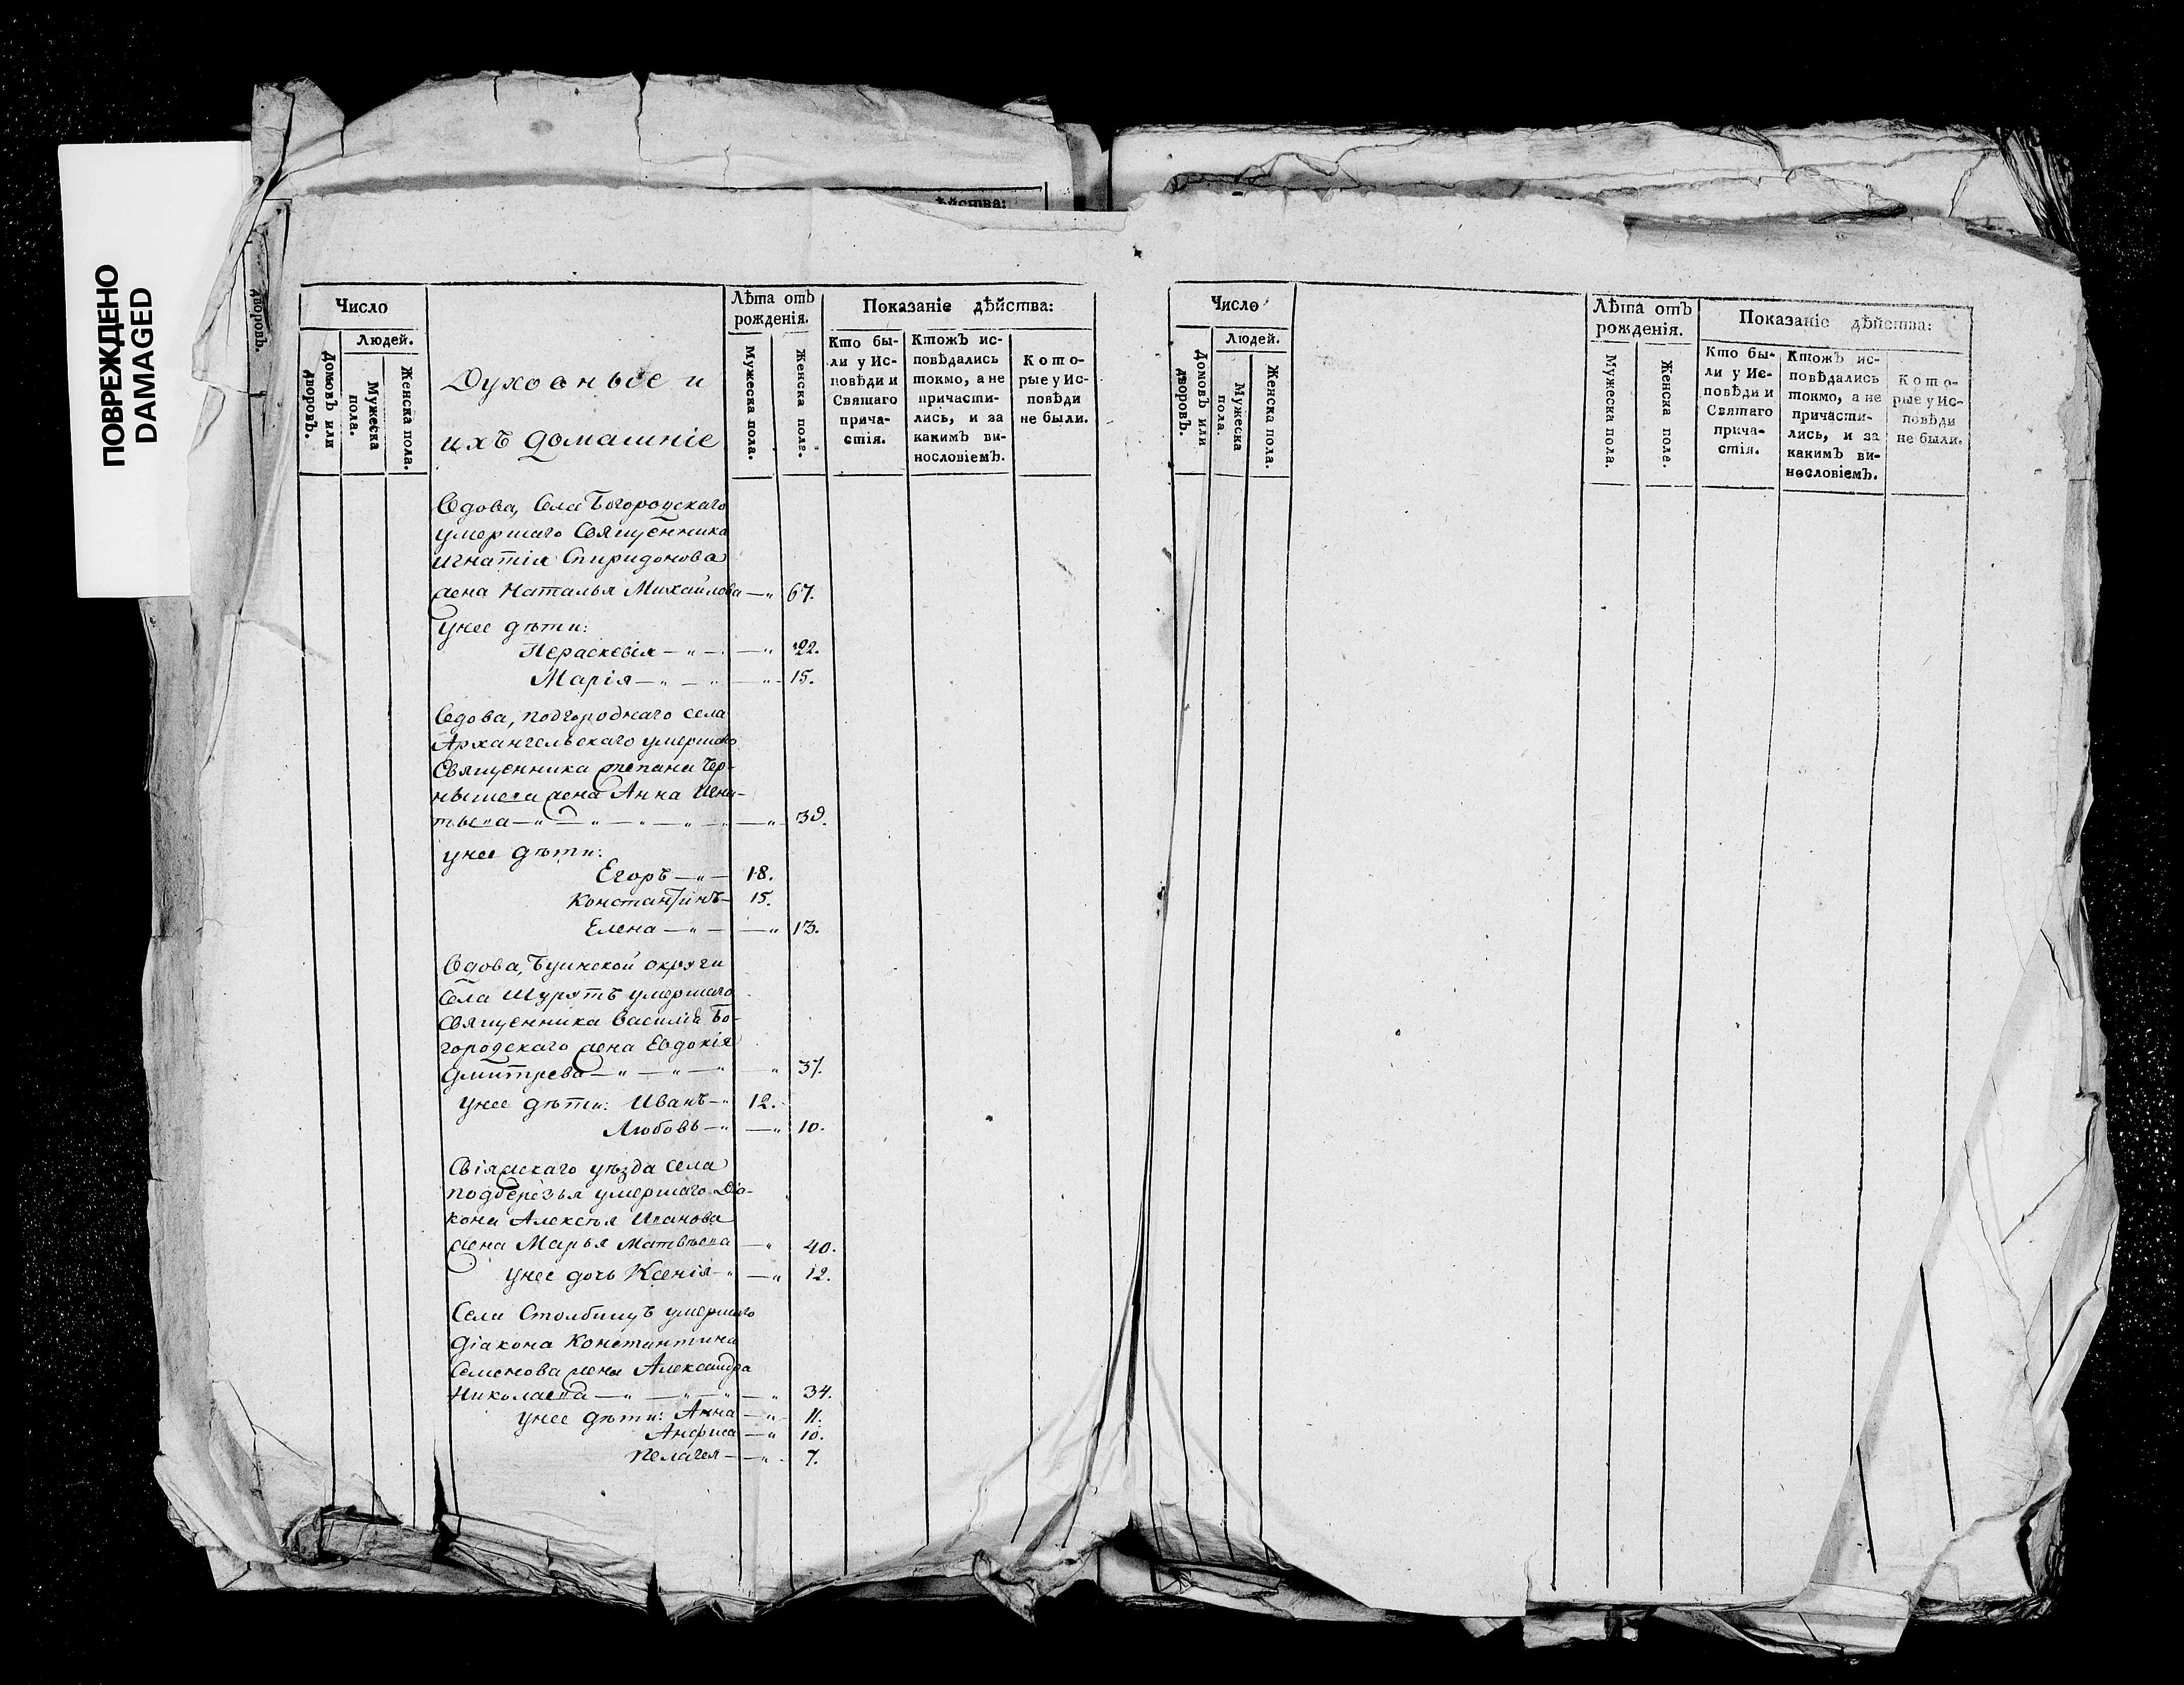 ПОВРЕЖДЕНО
DAMAGED
ѣйства:
дворовъ.
Число
Людей.
Домовъ или дворовъ.
Мужеска пола.
Женска пола.
Духовные и
ихъ домашніе
Лѣта отъ рожденія.
Мужеска пола.
Женска пола.
Показаніе дѣйства:
Кто были у Исповѣди и Святаго причастія.
Ктожъ исповѣдались токмо, а не причастились, и за какимъ винословіемъ.
Которые у Исповѣди не были.
Вдова, Села Богородскаго
умершаго Священника
Игнатія Спиридонова
жена Наталья Михайлова —„ 67.
у нее дѣти:
Параскевія — „ — — „ 22.
Марія — „ — „ — „ 15.
Вдова, подгороднаго села
Архангельскаго умершаго
Священника Степана Чер-
нышева жена Анна Игна-
тьева — „ — „ — „ — „ — — „ 39.
у нее дѣти:
Егоръ — „ — 18.
Константинъ — 15.
Елена — „ — — „ 13.
Вдова, Буинской округи
Села Шурутъ умершаго
Священника Василія Бо-
городскаго жена Евдокія
Дмитрева — „ — „ — „ 37.
у нее дѣти: Иванъ — „ 12.
Любовь — „ — „ 10.
Свіяжскаго уѣзда села
Подберезья умершаго Діа-
кона Алексѣя Иванова
жена Марья Матвѣева — „ 40.
у нее дочь Ксенія — „ — „ 12.
Села Столбищъ умершаго
Діакона Константина
Семенова жена Александра
Николаева — „ — „ — „ — „ 34.
у нее дѣти: Анна — „ 11.
Анфиса — „ 10.
Пелагея — — „ 7.
Число
Людей.
Домовъ или дворовъ.
Мужеска пола.
Женска пола.
Лѣта отъ рожденія.
Мужеска пола.
Женска поле.
Показаніе дѣйства:
Кто были у Исповѣди и Святаго причастія.
Ктожъ исповѣдались токмо, а не причастились, и за какимъ винословіемъ.
Которые у Исповѣди не были.